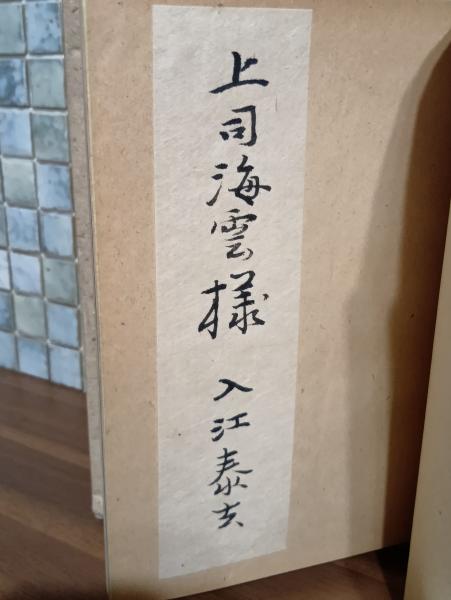 上司海雲様
入江泰吉